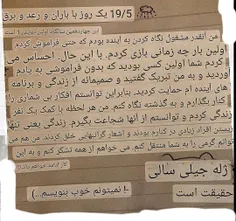 19/5 یک روز با باران و رعد و برق
این چهاردهمین سالگرد
من آنقدر مشغول نگاه کردن به آینده بودم که حتی فراموش کردم
اولین بار چه زمانی بازی کردم. با این حال، احساس می
کردم شما اولین کسی بودید که بدون فراموشی به یادم
آوردید و به من تبریک گفتید و صمیمانه از زندگی و برنامه
های آینده ام حمایت کردید. بنابراین توانستم افکار بی شماری را
کنار بگذارم و به گذشته نگاه کنم. من هر لحظه با کمک یک نفر
زندگی کردم و توانستم از آنها شجاعت بگیرم. زندگی یعنی تنها
زیستن افراد زیادی در کنارم بودند و اشعار گرانبهایی خلق کردند. من هم می
توانم گرمی را به شما منتقل کنم. می خواهم از همه تشکر کنم و به این
کار ادامه خواهم داد
ژله جیلی سالی
حقیقت است
(..نمیتونم خوب بنویسم!)